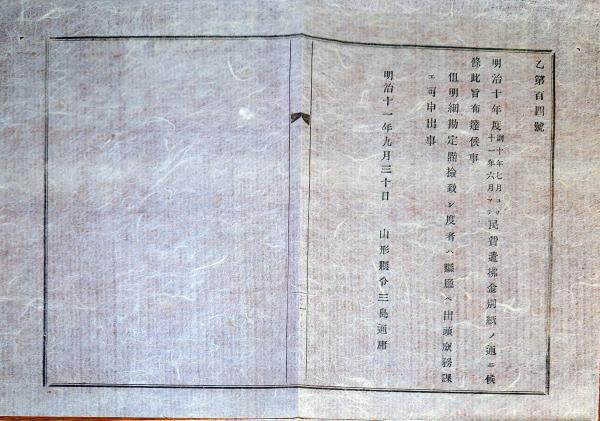 乙第百四號
明治十年度調十年七月ヨリ十一年六月マテ民費遣拂金別紙ノ通ニ候
條此旨布達候事
但明細勘定踏撿致シ度者ハ縣廳ヘ出頭庶務課
エ可申出事
明治十一年九月三十日 山形縣令三島通庸